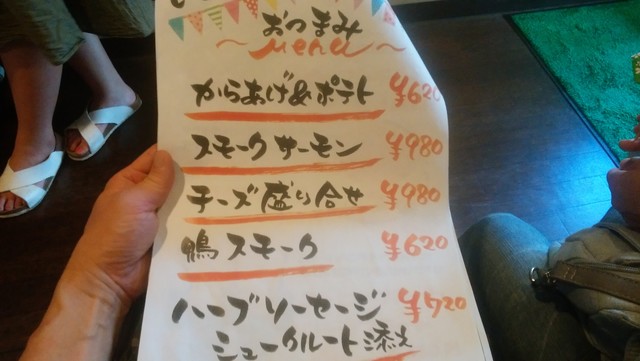 おつまみ
~Menu~
からあげ&ポテト ¥620
スモークサーモン ¥980
チーズ盛り合せ ¥980
鴨スモーク ¥620
ハーブソーセージ ¥720
シュークルート添え